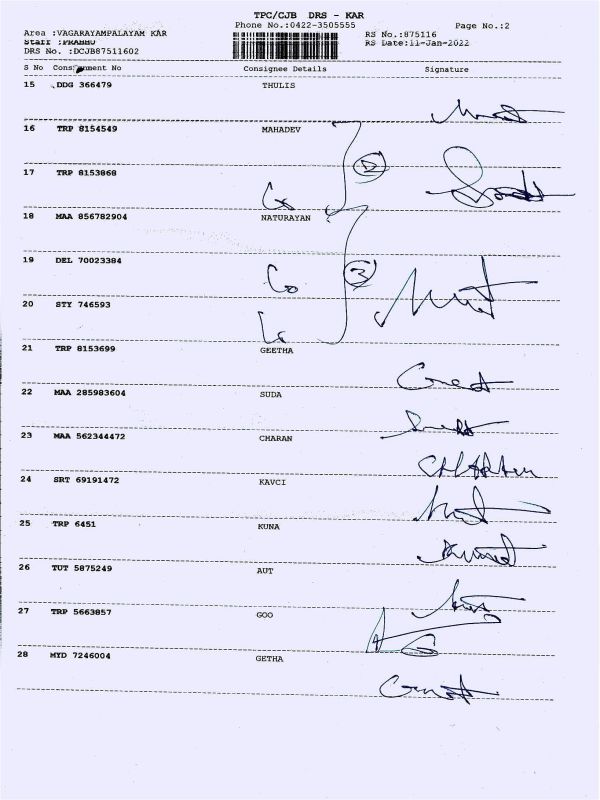 TPC/CJB DRS - KAR
Phone No.:0422-3505555 Page No.:2
Area :VAGARAYAMPALAYAM KAR RS No.:875116
Staff :PRABHU RS Date:11-Jan-2022
DRS No. :DCJB87511602
S No Consignment No Consignee Details Signature
15 DDG 366479 THULIS
16 TRP 8154549 MAHADEV
17 TRP 8153868
18 MAA 856782904 NATURAYAN
19 DEL 70023384
20 STY 746593
21 TRP 8153699 GEETHA
22 MAA 285983604 SUDA
23 MAA 562344472 CHARAN
24 SRT 69191472 KAVCI
25 TRP 6451 KUNA
26 TUT 5875249 AUT
27 TRP 5663857 GOO
28 MYD 7246004 GETHA